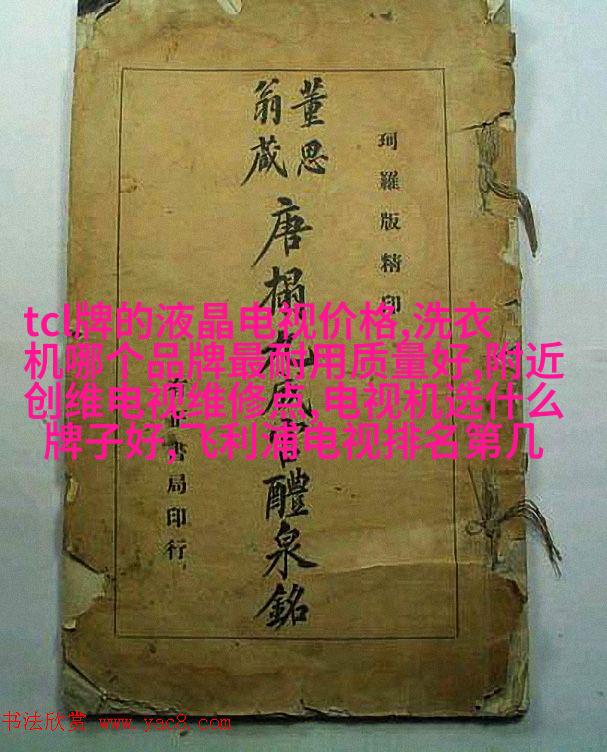 珂羅版精印
董思
翁藏
唐搨九成宮醴泉銘
書局印行
tcl牌的液晶电视价格,洗衣
机哪个品牌最耐用质量好,附近
创维电视维修点,电视机选什么
牌子好,飞利浦电视排名第几
书法欣赏 www.yac8.com